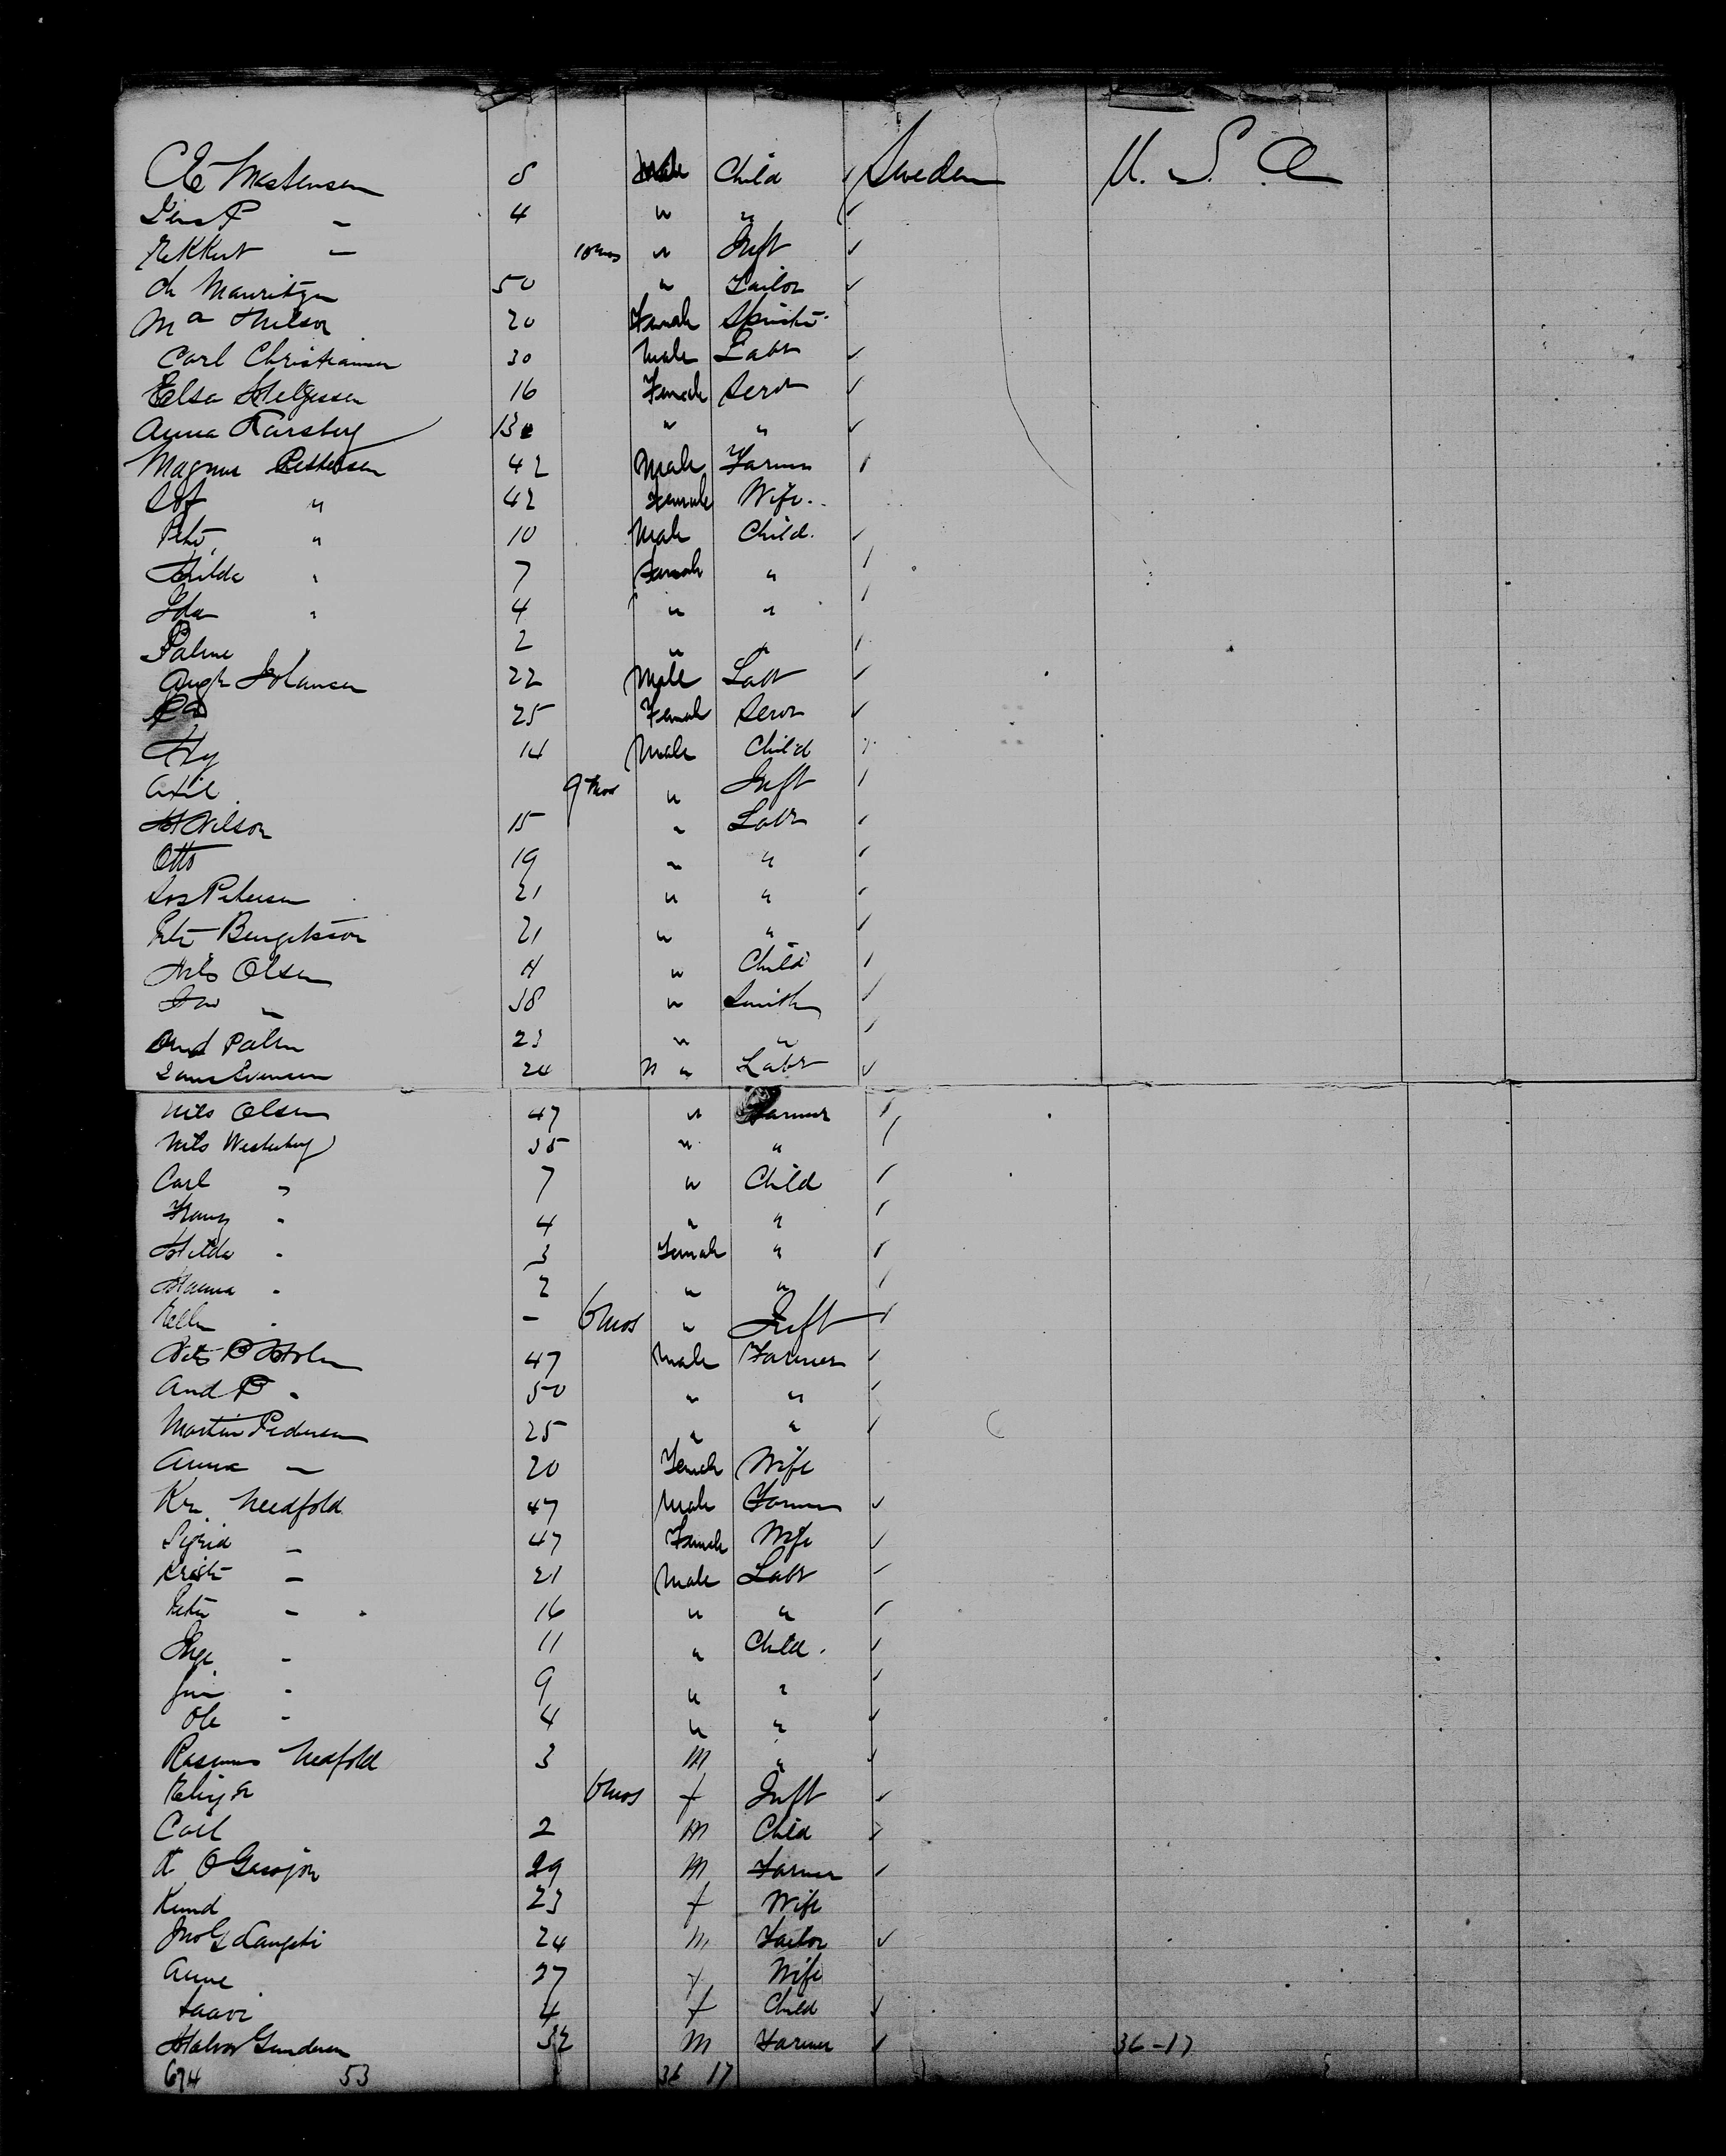 8 Male Child Sweden U. S. A
4 " "
10 mos " Inft
Ch Mauritzen 50 " Tailor
Ma Nilson 20 Female Spinstr
Carl Christiansen 30 Male Labr
Elsa Helgesen 16 Female Servt
Anna Karsberg 13 " "
Magnus Pettersen 42 Male Farmer
" 42 Female Wife
Petr " 10 Male Child
Hilda " 7 Female "
Ida " 4 " "
Palme 2 " "
Augt Johansen 22 Male Labr
25 Female Servt
Hy 14 Male Child
Axil 9 mos " Inft
H Nilson 15 " Labr
Otto 19 " "
Jos Petersen 21 " "
Petr Bengtsson 21 " "
Nils Olsen " Child
38 " Smith
And Palm 23 " "
Evensen 24 M " Labr
Nils Olsen 47 " Farmer
Nils Westerberg 35 " "
Carl " 7 " Child
Franz " 4 " "
Hilda " 3 Female "
Hanna " 2 " "
Ellen " - 6 mos " Inft
Nils P Holm 47 Male Farmer
And P " 50 " "
Martin Pedersen 25 " "
Anna - 20 Female Wife
Kr. Needfold 47 Male Farmer
Sigrid - 47 Female Wife
Krist - 21 Male Labr
Peter - 16 " "
Inge - 11 " Child
- 9 " "
Ole - 4 " "
Rasmus Nedfold 3 M "
6 mos f Inft
Carl 2 M Child
29 M Farmer
Knud 23 f Wife
24 M Tailor
Anne 27 f Wife
4 f Child
Halvor Gundersen 32 M Farmer 36-17
674 53 36 17